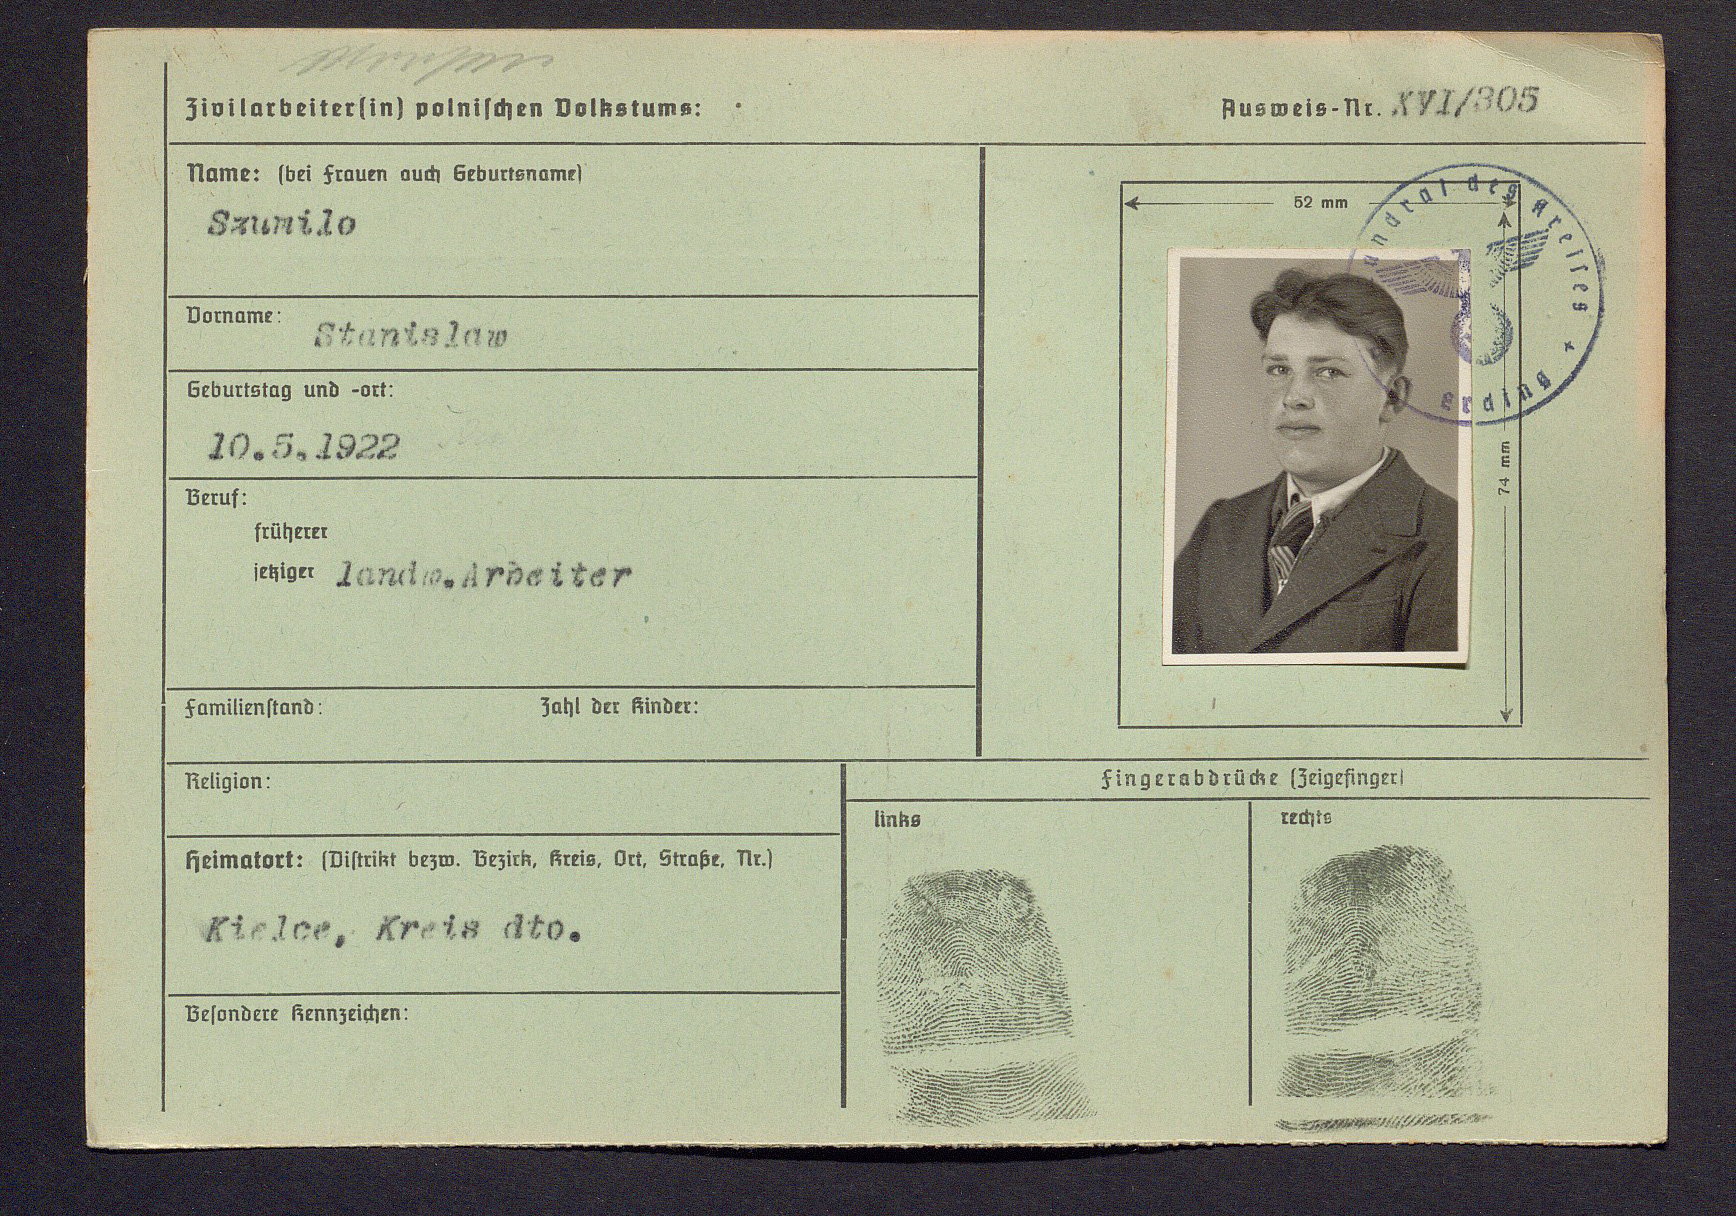 Zivilarbeiter(in) polnischen Volkstums:
Ausweis-Nr. XVI/305
Name: (bei Frauen auch Geburtsname)
Szumilo
Vorname: Stanislaw
Geburtstag und -ort:
10.5.1922
Beruf:
früherer
jetziger landw.Arbeiter
Familienstand: Zahl der Kinder:
Religion:
Heimatort: (Distrikt bezw. Bezirk, Kreis, Ort, Straße, Nr.)
Kielce, Kreis dto.
Besondere Kennzeichen:
52 mm
74 mm
Landrat des Kreises
* Erding
Fingerabdrücke (Zeigefinger)
links
rechts